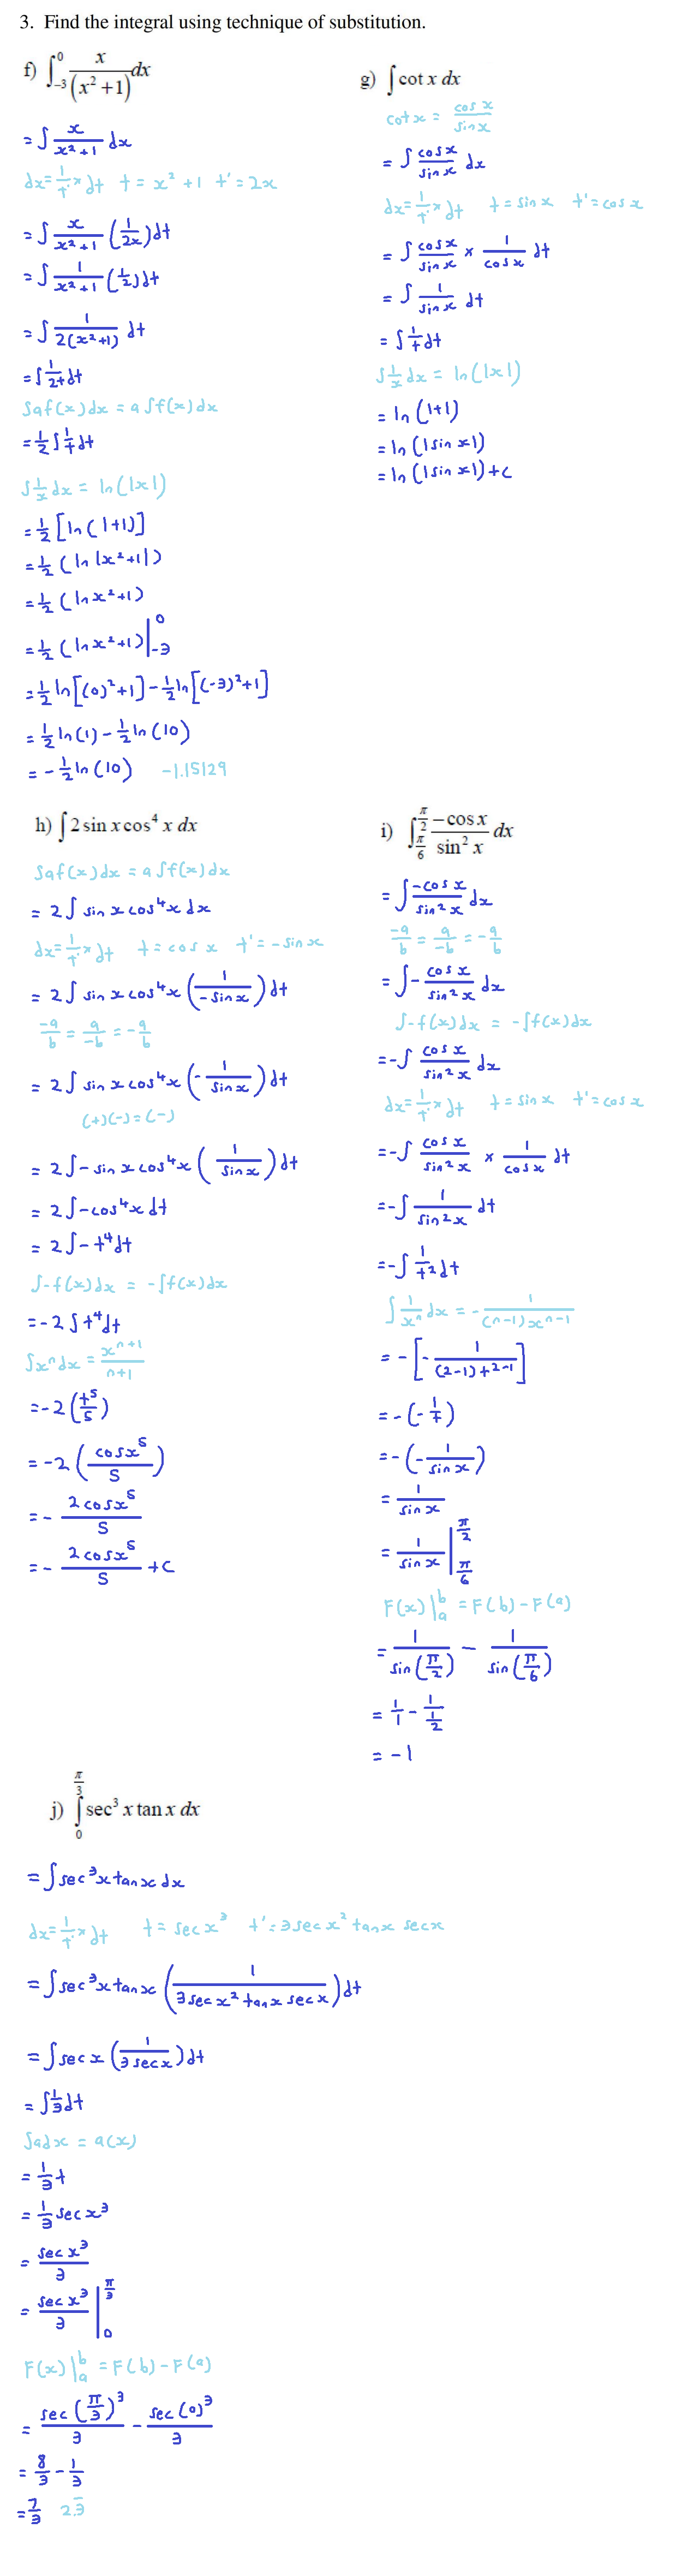 3. Find the integral using technique of substitution.
f) ∫₋₃⁰ x/(x² +1) dx
= ∫ x/(x²+1) dx
dx = 1/t' × dt   t = x² +1   t' = 2x
= ∫ x/(x²+1) (1/2x) dt
= ∫ 1/(x²+1) (1/2) dt
= ∫ 1/(2(x²+1)) dt
= ∫ 1/2t dt
∫af(x)dx = a∫f(x)dx
= 1/2 ∫ 1/t dt
∫ 1/x dx = ln(|x|)
= 1/2 [ln(|t|)]
= 1/2 (ln|x²+1|)
= 1/2 (lnx²+1)
= 1/2 (lnx²+1) |₋₃⁰
= 1/2 ln[(0)²+1] - 1/2 ln[(-3)²+1]
= 1/2 ln(1) - 1/2 ln(10)
= - 1/2 ln(10)   -1.15129
g) ∫ cot x dx
cotx = cos x/sin x
= ∫ cosx/sin x dx
dx = 1/t' × dt   t = sin x   t' = cos x
= ∫ cosx/sin x × 1/cosx dt
= ∫ 1/sinx dt
= ∫ 1/t dt
∫ 1/x dx = ln(|x|)
= ln(|t|)
= ln(|sin x|)
= ln(|sin x|)+c
h) ∫ 2 sin x cos⁴ x dx
∫af(x)dx = a∫f(x)dx
= 2∫ sin x cos⁴x dx
dx = 1/t' × dt   t = cos x   t' = - sin x
= 2∫ sin x cos⁴x (1/-sinx) dt
-a/b = a/-b = -a/b
= 2∫ sin x cos⁴x (- 1/sinx) dt
(+)(-) = (-)
= 2∫ - sin x cos⁴x (1/sinx) dt
= 2∫ -cos⁴x dt
= 2∫ - t⁴dt
∫-f(x)dx = -∫f(x)dx
= -2∫t⁴dt
∫xⁿdx = xⁿ⁺¹/n+1
= -2 (t⁵/5)
= -2 (cosx⁵/5)
= - 2cosx⁵/5
= - 2cosx⁵/5 +c
i) ∫_{π/6}^{π/2} -cos x/sin² x dx
= ∫ -cos x/sin²x dx
-a/b = a/-b = -a/b
= ∫ - cosx/sin²x dx
∫-f(x)dx = -∫f(x)dx
= -∫ cosx/sin²x dx
dx = 1/t' × dt   t = sin x   t' = cos x
= -∫ cosx/sin²x × 1/cosx dt
= -∫ 1/sin²x dt
= -∫ 1/t² dt
∫ 1/xⁿ dx = - 1/(n-1)xⁿ⁻¹
= - [- 1/(2-1)t²⁻¹]
= - (- 1/t)
= - (- 1/sin x)
= 1/sin x
= 1/sin x |_{π/6}^{π/2}
F(x)|ₐᵇ = F(b) - F(a)
= 1/sin(π/2) - 1/sin(π/6)
= 1/1 - 1/(1/2)
= -1
j) ∫₀^{π/3} sec³ x tan x dx
= ∫ sec³x tanx dx
dx = 1/t' × dt   t = sec x³   t' = 3secx² tanx secx
= ∫ sec³x tanx (1/3secx² tanx secx) dt
= ∫ secx (1/3secx) dt
= ∫ 1/3 dt
∫adx = a(x)
= 1/3 t
= 1/3 secx³
= secx³/3
= secx³/3 |₀^{π/3}
F(x)|ₐᵇ = F(b) - F(a)
= sec(π/3)³/3 - sec(0)³/3
= 8/3 - 1/3
= 7/3   2.3̅